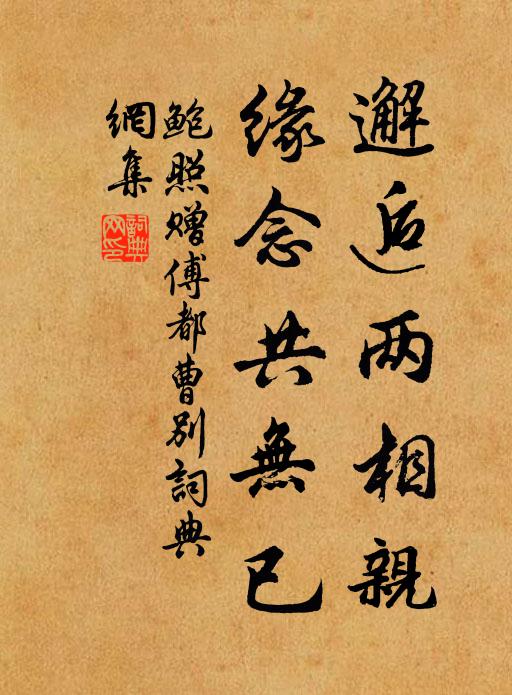 邂逅两相親
緣念共無已
鮑照赠傅都曹别詞典
網集
詞典
网印